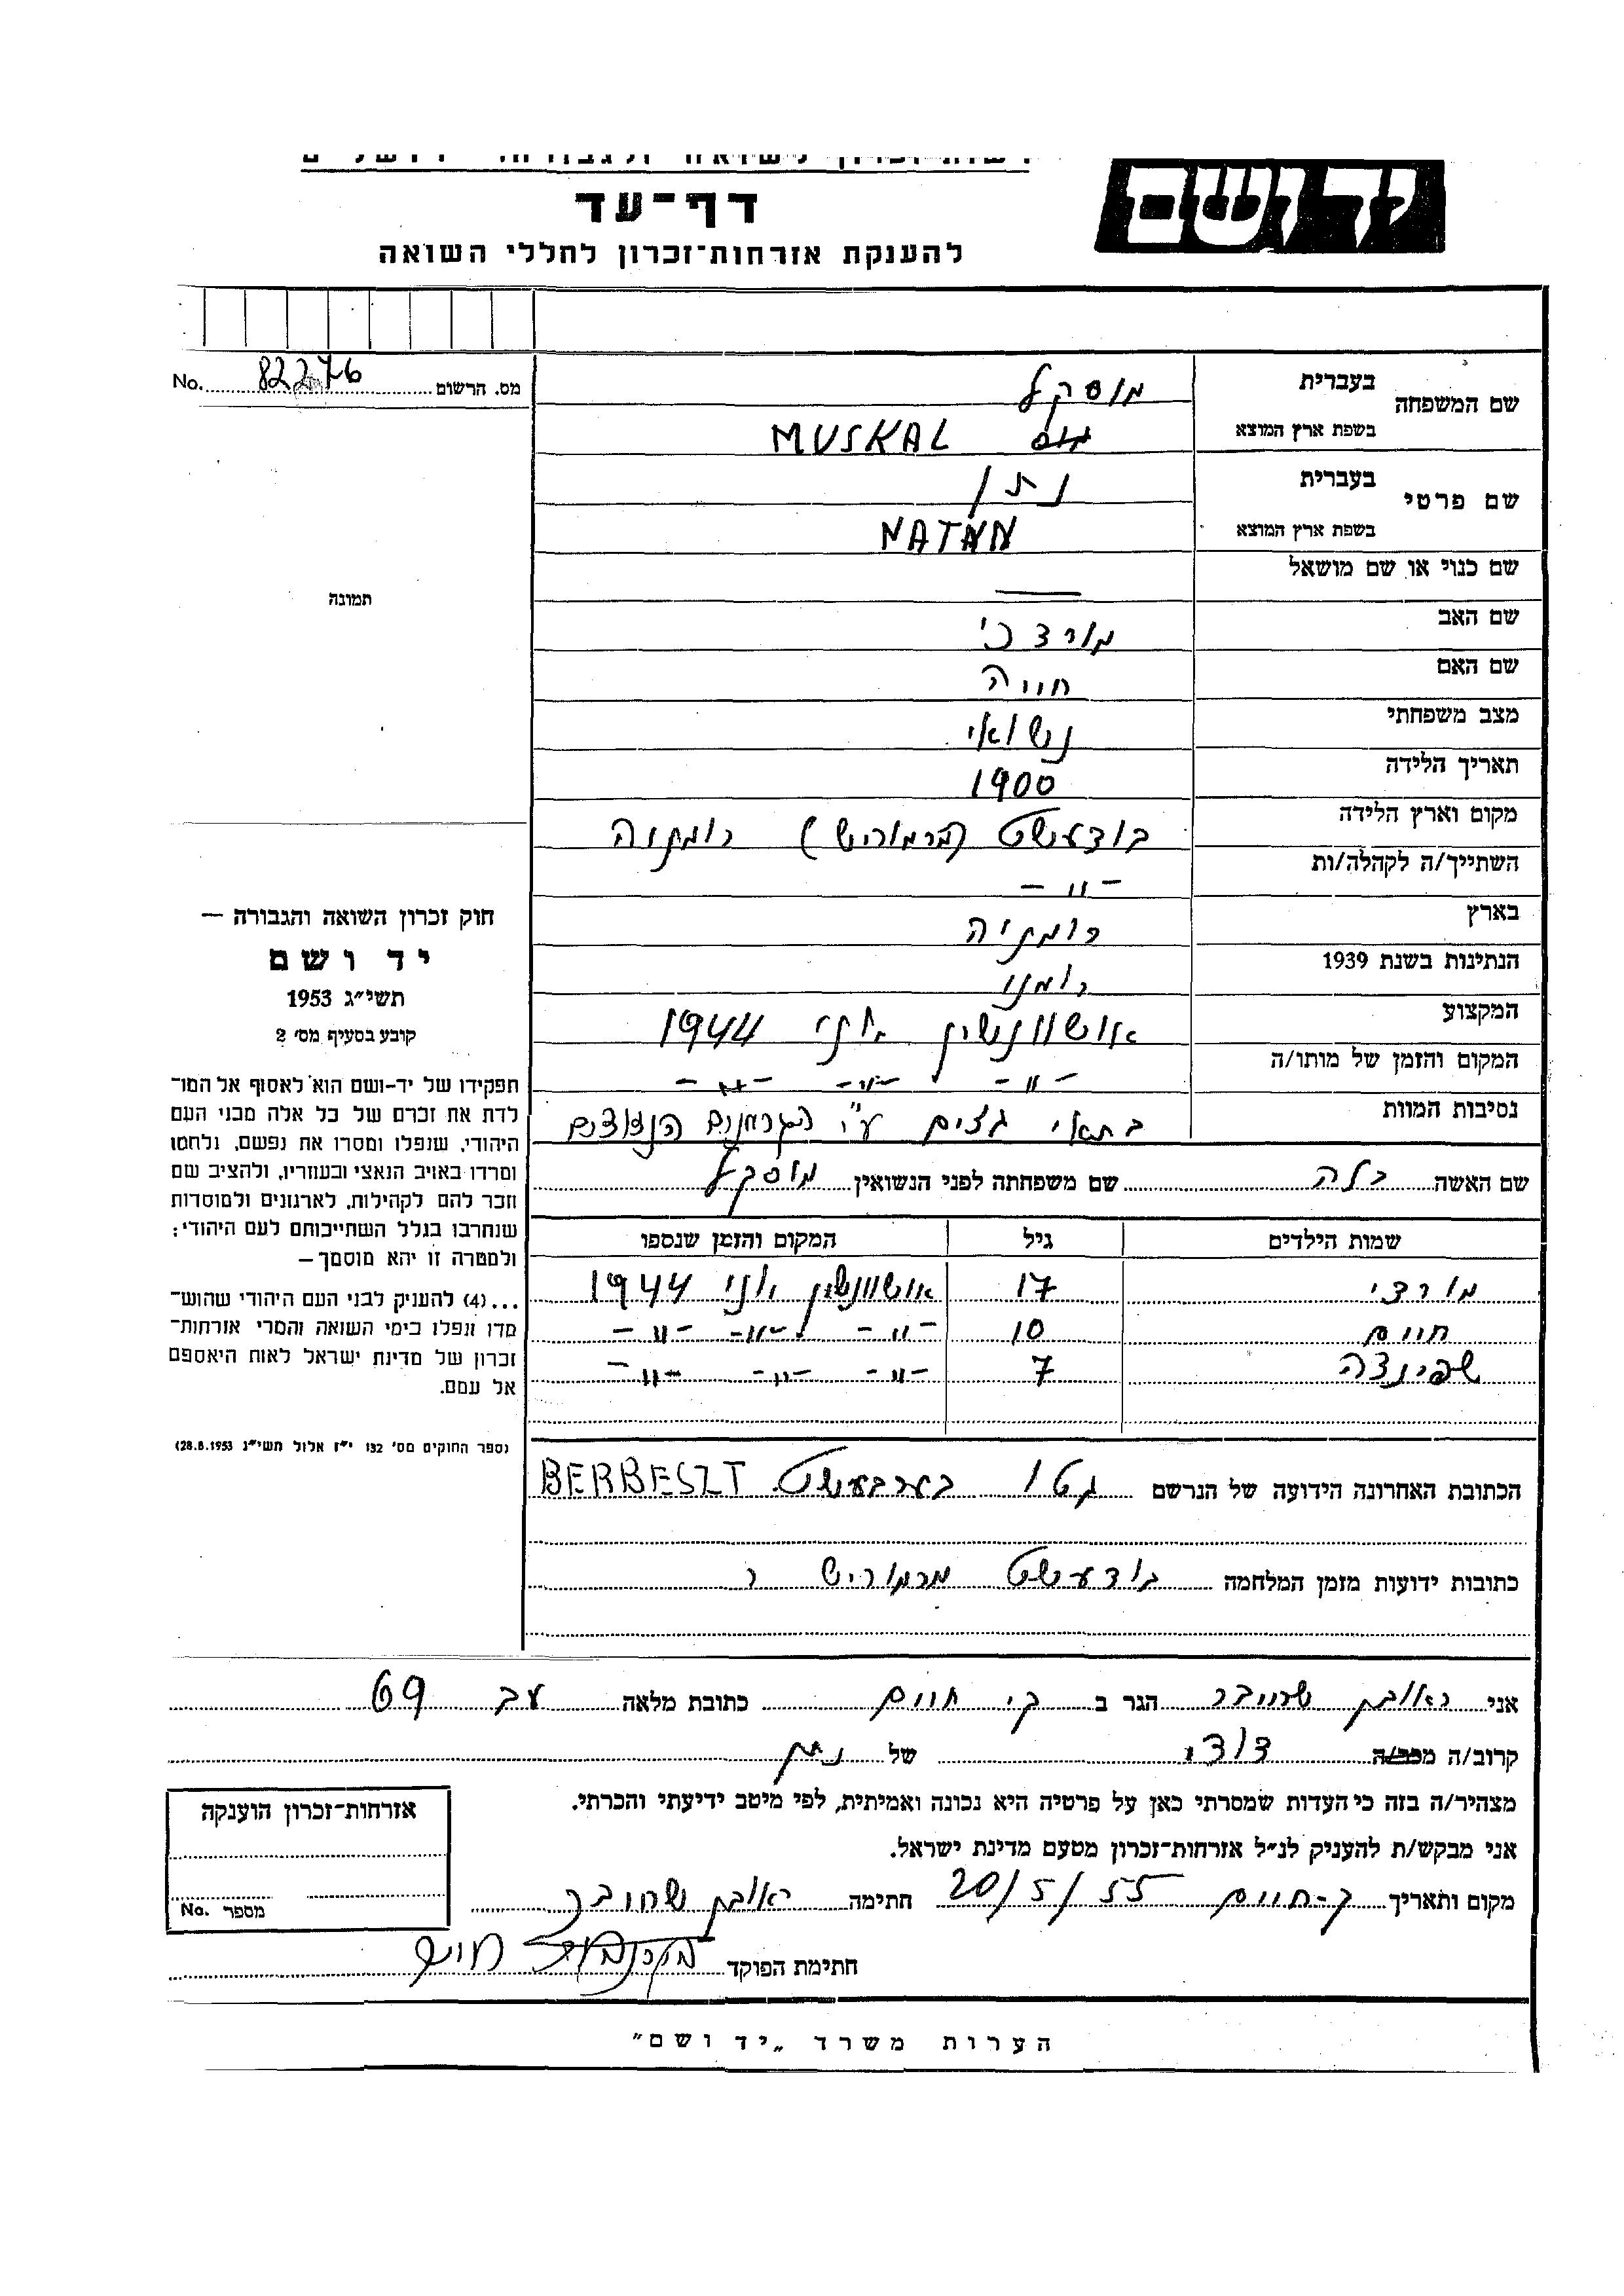 יד ושם
דף-עד
להענקת אזרחות-זכרון לחללי השואה
No. 82276 מס. הרשום
שם המשפחה בעברית מוסקל
בשפת ארץ המוצא MUSKAL
שם פרטי בעברית נתן
בשפת ארץ המוצא NATAN
שם כנוי או שם מושאל —
שם האב מורדכי
שם האם חויה
מצב משפחתי נשואי
תאריך הלידה 1900
מקום וארץ הלידה בודעשט (מרמוריש) רומניה
השתייך/ה לקהלה/ות - " -
בארץ רומניה
הנתינות בשנת 1939 רומני
המקצוע אושוונשין יוני 1944
המקום והזמן של מותו/ה - " - - " - - " -
נסיבות המוות בתאי גזים ע"י הגרמנים הנאצים
שם האשה בלה שם משפחתה לפני הנשואין מוסקל
שמות הילדים גיל המקום והזמן שנספו
מורדצי 17 אושוונשין יוני 1944
חיים 10 - " - - " - - " -
שפינצה 7 - " - - " - - " -
הכתובת האחרונה הידועה של הנרשם גטו בערבעשט BERBESZT
כתובות ידועות מזמן המלחמה בודעשט מרמוריש
תמונה
חוק זכרון השואה והגבורה —
יד ושם
תשי״ג 1953
קובע בסעיף מס׳ 2
תפקידו של יד-ושם הוא לאסוף אל המו־
לדת את זכרם של כל אלה מבני העם
היהודי, שנפלו ומסרו את נפשם, נלחמו
ומרדו באויב הנאצי ובעוזריו, ולהציב שם
וזכר להם לקהילות, לארגונים ולמוסדות
שנחרבו בגלל השתייכותם לעם היהודי:
ולמטרה זו יהא מוסמך —
...(4) להעניק לבני העם היהודי שהוש־
מדו ונפלו בימי השואה והמרי אזרחות־
זכרון של מדינת ישראל לאות היאספם
אל עמם.
(ספר החוקים מס׳ 132 י״ז אלול תשי״ג 28.8.1953)
אני ראובן הגר ב ק׳ חיים כתובת מלאה עב 69
קרוב/ה דודי של נתן
מצהיר/ה בזה כי העדות שמסרתי כאן על פרטיה היא נכונה ואמיתית, לפי מיטב ידיעתי והכרתי.
אני מבקש/ת להעניק לנ״ל אזרחות-זכרון מטעם מדינת ישראל.
מקום ותאריך ק-חיים 20/5/55 חתימה ראובן
חתימת הפוקד
אזרחות-זכרון הוענקה
No. מספר
הערות משרד „יד ושם״